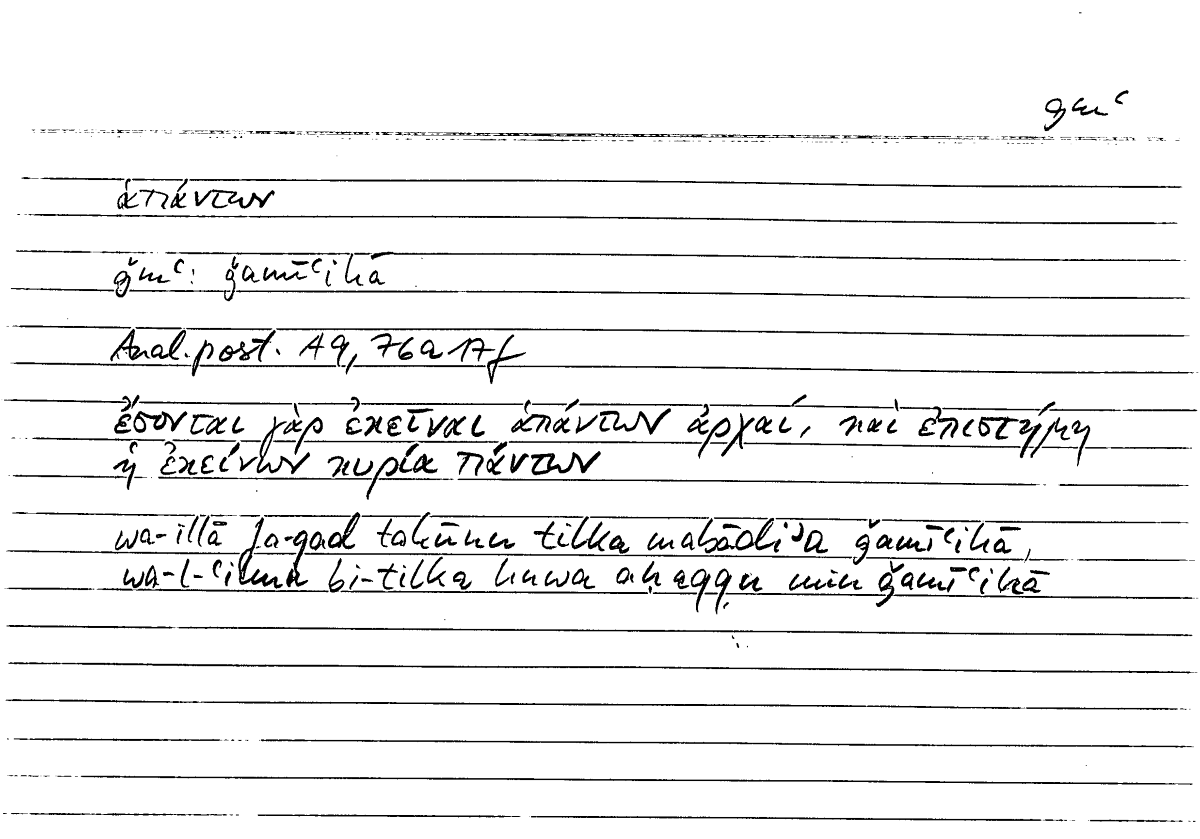 ǧmʿ
ἁπάντων
ǧmʿ: ǧamīʿihā
Anal. post. A 9, 76a17f
ἔσονται γὰρ ἐκεῖναι ἁπάντων ἀρχαί, καὶ ἐπιστήμη
ἡ ἐκείνων κυρία πάντων
wa-illā fa-qad takūnu tilka mabādiʾa ǧamīʿihā,
wa-l-ʿilmu bi-tilka huwa aḥaqqu min ǧamīʿihā